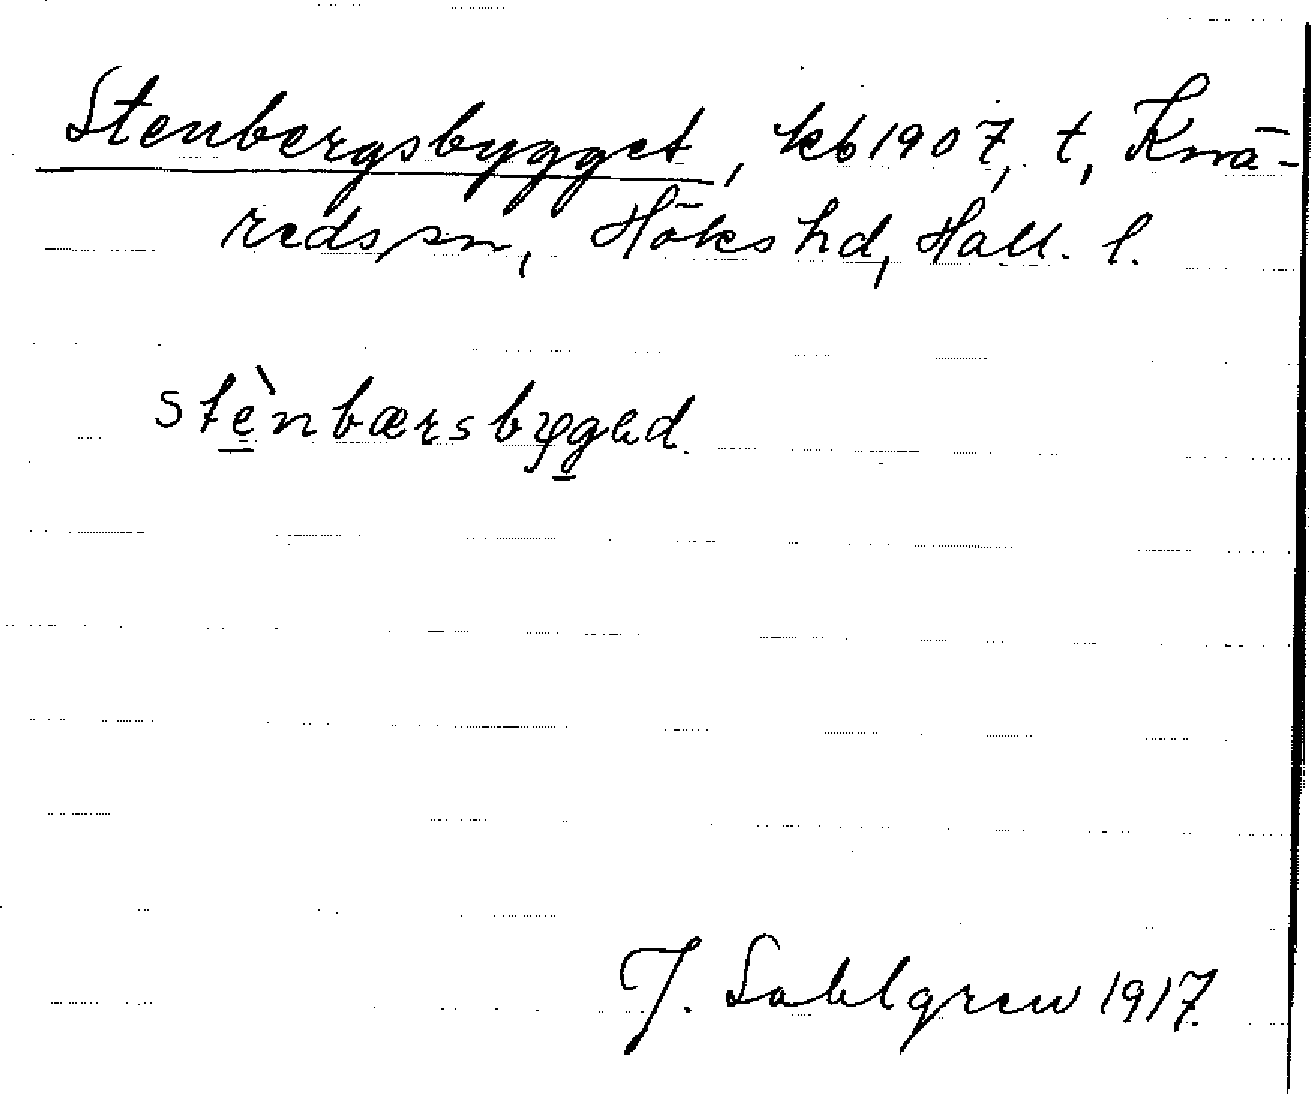 Stenbergsbygget, kb 1907, t, Knä-
reds sn, Höks hd, Hall. l.
stènbærsbygəd.
J. Sahlgren 1917.